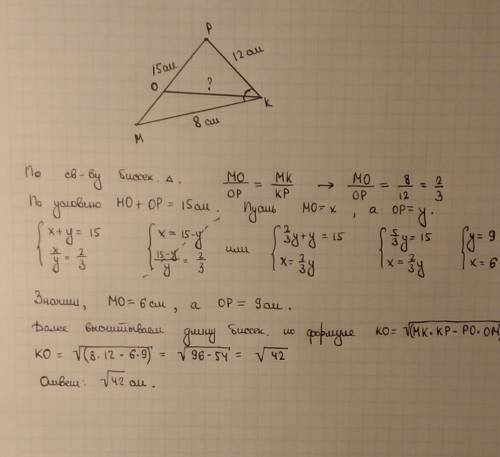 P
15см
12см
O
?
K
8 см
M
По св-ву биссек. Δ. MO/OP = MK/KP → MO/OP = 8/12 = 2/3
По условию MO + OP = 15см. Пусть MO = x, а OP = y.
{ x + y = 15 { x = 15 - y или { 2/3y + y = 15 { 5/3y = 15 { y = 9
{ x/y = 2/3 { 15-y/y = 2/3 { x = 2/3y { x = 2/3y { x = 6
Значит, MO = 6см, а OP = 9см.
Далее высчитываем длину биссек. по формуле KO = √(MK · KP - PO · OM)
KO = √(8 · 12 - 6 · 9) = √96 - 54 = √42
Ответ: √42 см.